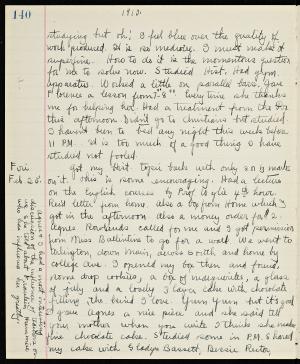 140
1910.
studying but oh! I feel blue over the quality of
work produced. It is so mediocre. I must make it
superfine. How to do it is the momentous question
for me to solve now. Studied Hist. Had gym.
apparatus. Worked a little on parallel bars. Gave
Florence a lesson from 7-8 every time she thanks me
for helping her. Had a treatment from the Dr.
this afternoon. Didn't go to Christians but studied.
I haven't been to bed any night this week before
11 P.M. It is too much of a good thing I have
studied not fooled.
Fri.
Feb 25.
Got my Hist. Topic back with only
on it. This is some encouraging. Had a lecture
on the English course by Prof. 4th hour.
Rec'd letter from home. Also a box from home which I
got in the afternoon also a money order for
Agnes Rowlands called for me and I got permission
from Miss Ballintine to go for a walk. We went to
down main, across South and home by
college ave. I opened my box then and found
some drop cookies, a box of a glass
of jelly and a lovely 3 layer cake with chocolate
filling, the kind I love. Yum Yum but it's good
I gave Agnes a nice piece and she said tell
your mother when you write I think she makes
fine chocolate cake. Studied some in P.M. & shared
my cake with Gladys Bassett, Bessie Rector,
Agnes & I had a most interesting
discussion of the